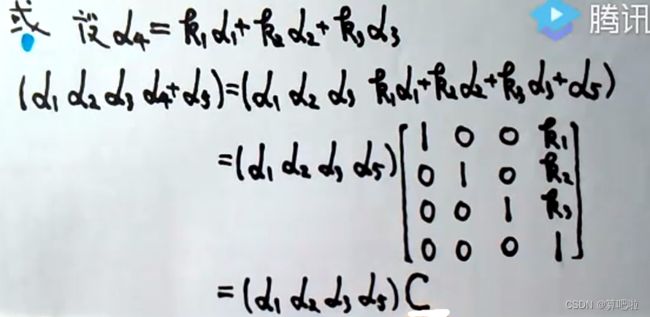 或 设 α₄ = k₁α₁+k₂α₂+k₃α₃
腾讯
(α₁ α₂ α₃ α₄+α₅)=(α₁ α₂ α₃ k₁α₁+k₂α₂+k₃α₃+α₅)
=(α₁ α₂ α₃ α₅)
1 0 0 k₁
0 1 0 k₂
0 0 1 k₃
0 0 0 1
=(α₁ α₂ α₃ α₅) C
CSDN @算吧啦